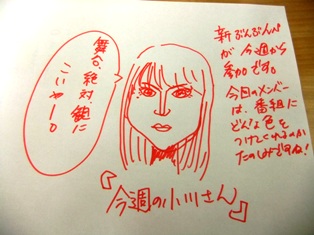 新ぶんぶんぺ
が今週から
参加です。
今回のメンバー
は、番組に
どんな色を
つけてくれるのか
たのしみですね!
舞台、絶対、観に
こいやーっ
『今週の小川さん』